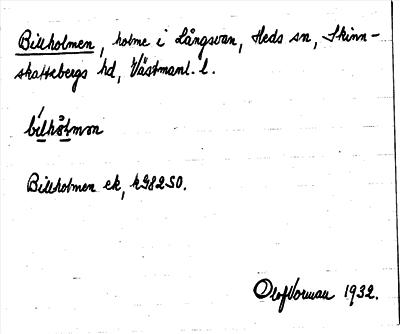 Billholmen, holme i Långsvan, Heds sn, Skinn-
skattebergs hd, Västmanl. l.
bílhòlmən
Billholmen ek, kG82SO.
Olof Vorman 1932.